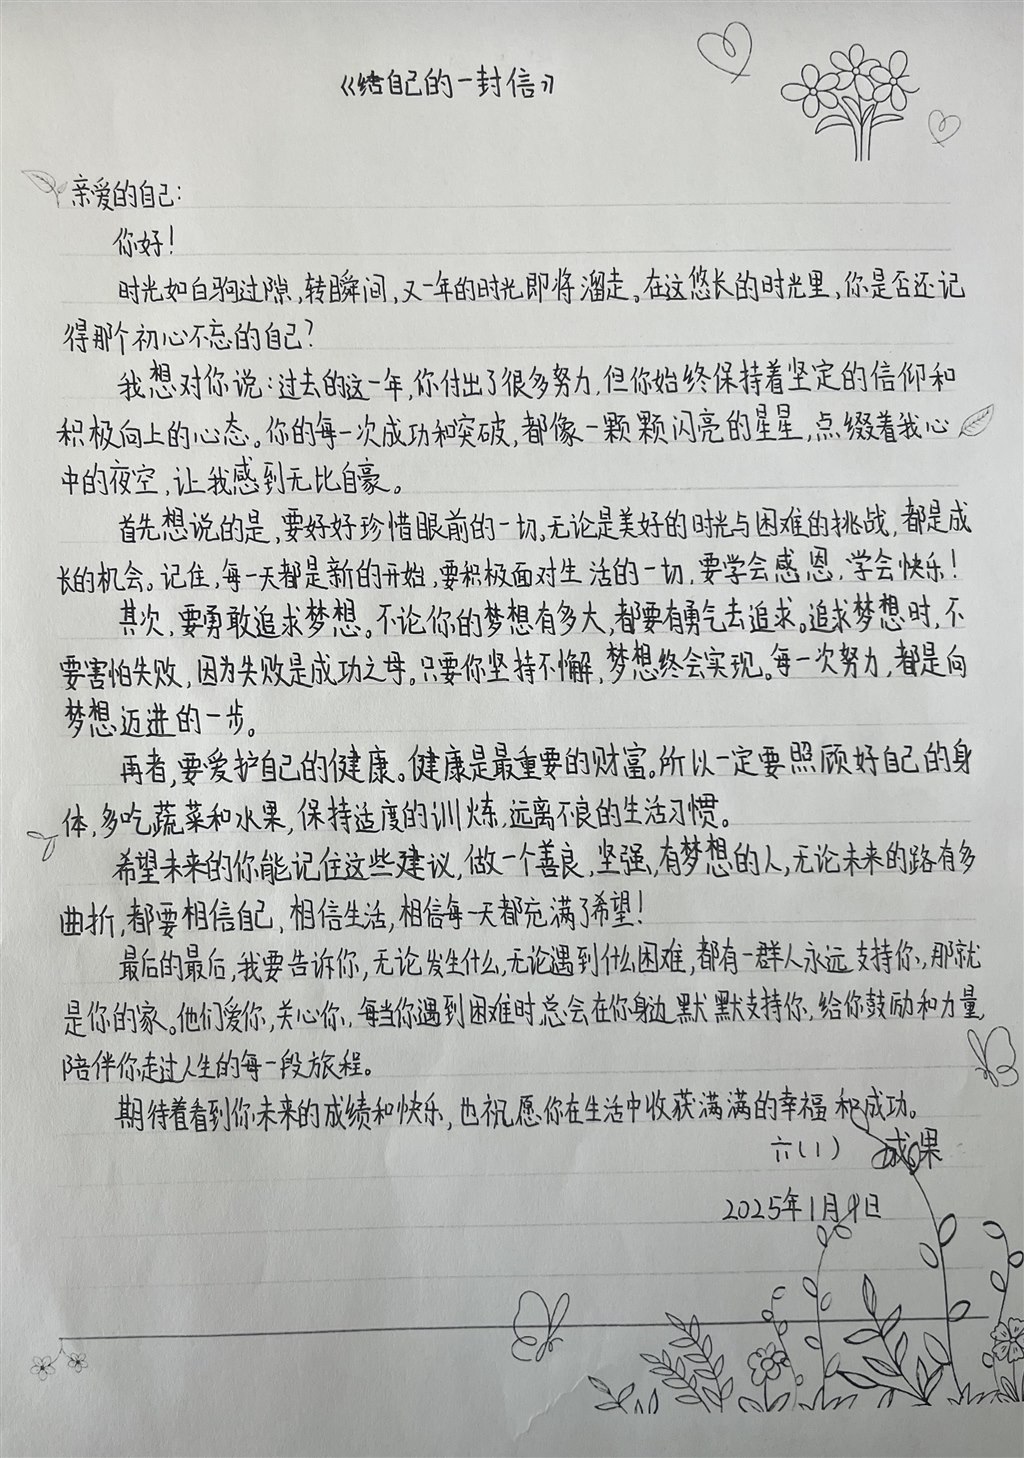 《给自己的一封信》
亲爱的自己：
你好！
时光如白驹过隙，转瞬间，又一年的时光即将溜走。在这悠长的时光里，你是否还记
得那个初心不忘的自己？
我想对你说：过去的这一年，你付出了很多努力，但你始终保持着坚定的信仰和
积极向上的心态。你的每一次成功和突破，都像一颗颗闪亮的星星，点缀着我心
中的夜空，让我感到无比自豪。
首先想说的是，要好好珍惜眼前的一切。无论是美好的时光与困难的挑战，都是成
长的机会。记住，每一天都是新的开始，要积极面对生活的一切，要学会感恩，学会快乐！
其次，要勇敢追求梦想。不论你的梦想有多大，都要有勇气去追求。追求梦想时，不
要害怕失败，因为失败是成功之母。只要你坚持不懈，梦想终会实现。每一次努力，都是向
梦想迈进的一步。
再者，要爱护自己的健康。健康是最重要的财富。所以一定要照顾好自己的身
体，多吃蔬菜和水果，保持适度的训炼，远离不良的生活习惯。
希望未来的你能记住这些建议，做一个善良，坚强，有梦想的人，无论未来的路有多
曲折，都要相信自己，相信生活，相信每一天都充满了希望！
最后的最后，我要告诉你，无论发生什么，无论遇到什么困难，都有一群人永远支持你，那就
是你的家。他们爱你，关心你，每当你遇到困难时总会在你身边默默支持你，给你鼓励和力量，
陪伴你走过人生的每一段旅程。
期待着看到你未来的成绩和快乐，也祝愿你在生活中收获满满的幸福和成功。
六(1) 成果
2025年1月9日